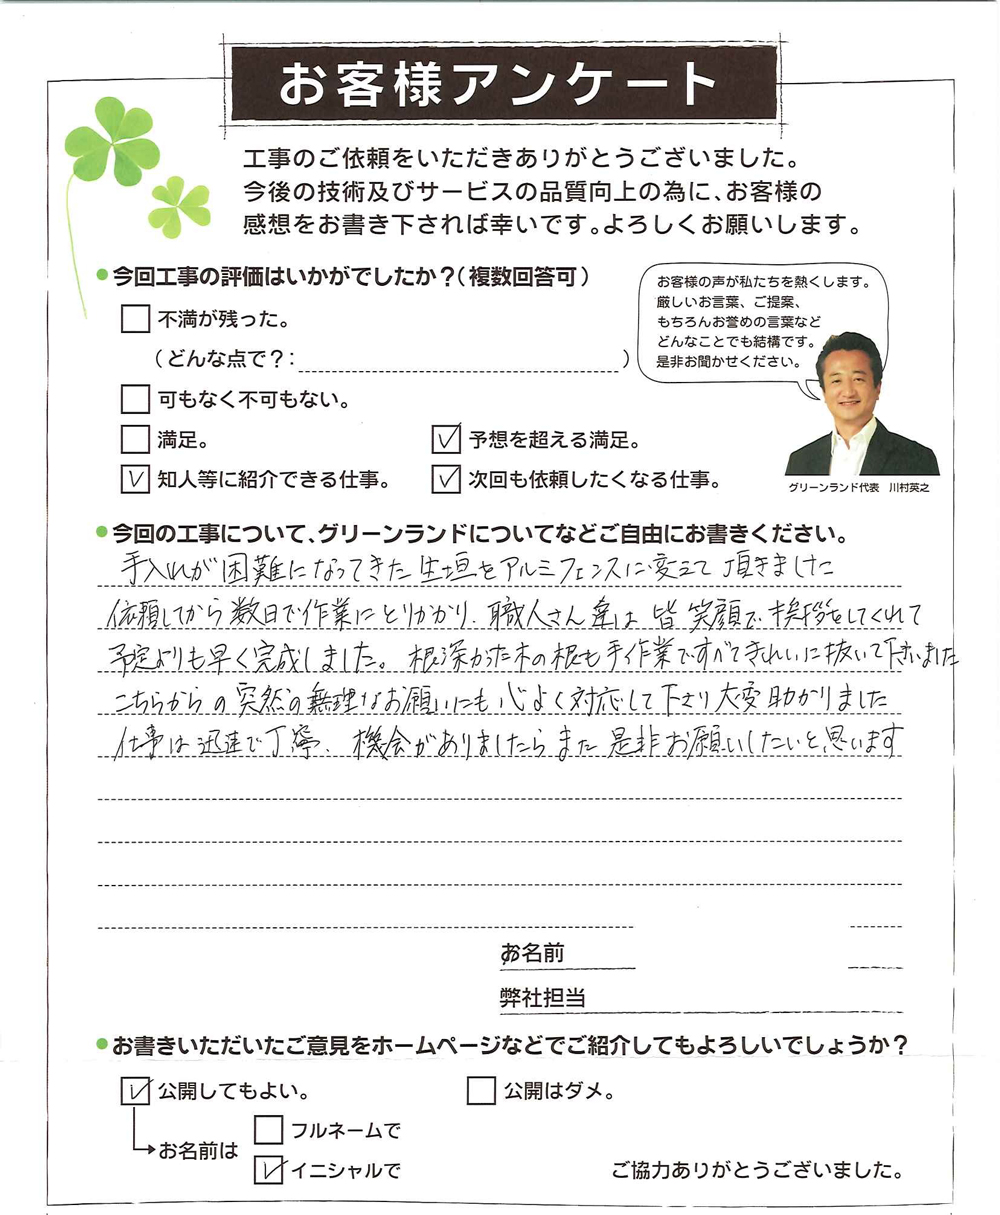 お客様アンケート
工事のご依頼をいただきありがとうございました。
今後の技術及びサービスの品質向上の為に、お客様の
感想をお書き下されば幸いです。よろしくお願いします。
●今回工事の評価はいかがでしたか？（複数回答可）
お客様の声が私たちを熱くします。
厳しいお言葉、ご提案、
もちろんお誉めの言葉など
どんなことでも結構です。
是非お聞かせください。
グリーンランド代表　川村英之
□ 不満が残った。
（どんな点で？： ）
□ 可もなく不可もない。
□ 満足。 ☑ 予想を超える満足。
☑ 知人等に紹介できる仕事。 ☑ 次回も依頼したくなる仕事。
●今回の工事について、グリーンランドについてなどご自由にお書きください。
手入れが困難になってきた生垣をアルミフェンスに変えて頂きました
依頼してから数日で作業にとりかかり、職人さん達は皆笑顔で挨拶をしてくれて
予定よりも早く完成しました。根深かった木の根も手作業ですべてきれいに抜いて下さいました
こちらからの突然の無理なお願いにも心よく対応して下さり大変助かりました
仕事は迅速で丁寧、機会がありましたらまた是非お願いしたいと思います
お名前
弊社担当
●お書きいただいたご意見をホームページなどでご紹介してもよろしいでしょうか？
☑ 公開してもよい。 □ 公開はダメ。
お名前は □ フルネームで
☑ イニシャルで
ご協力ありがとうございました。